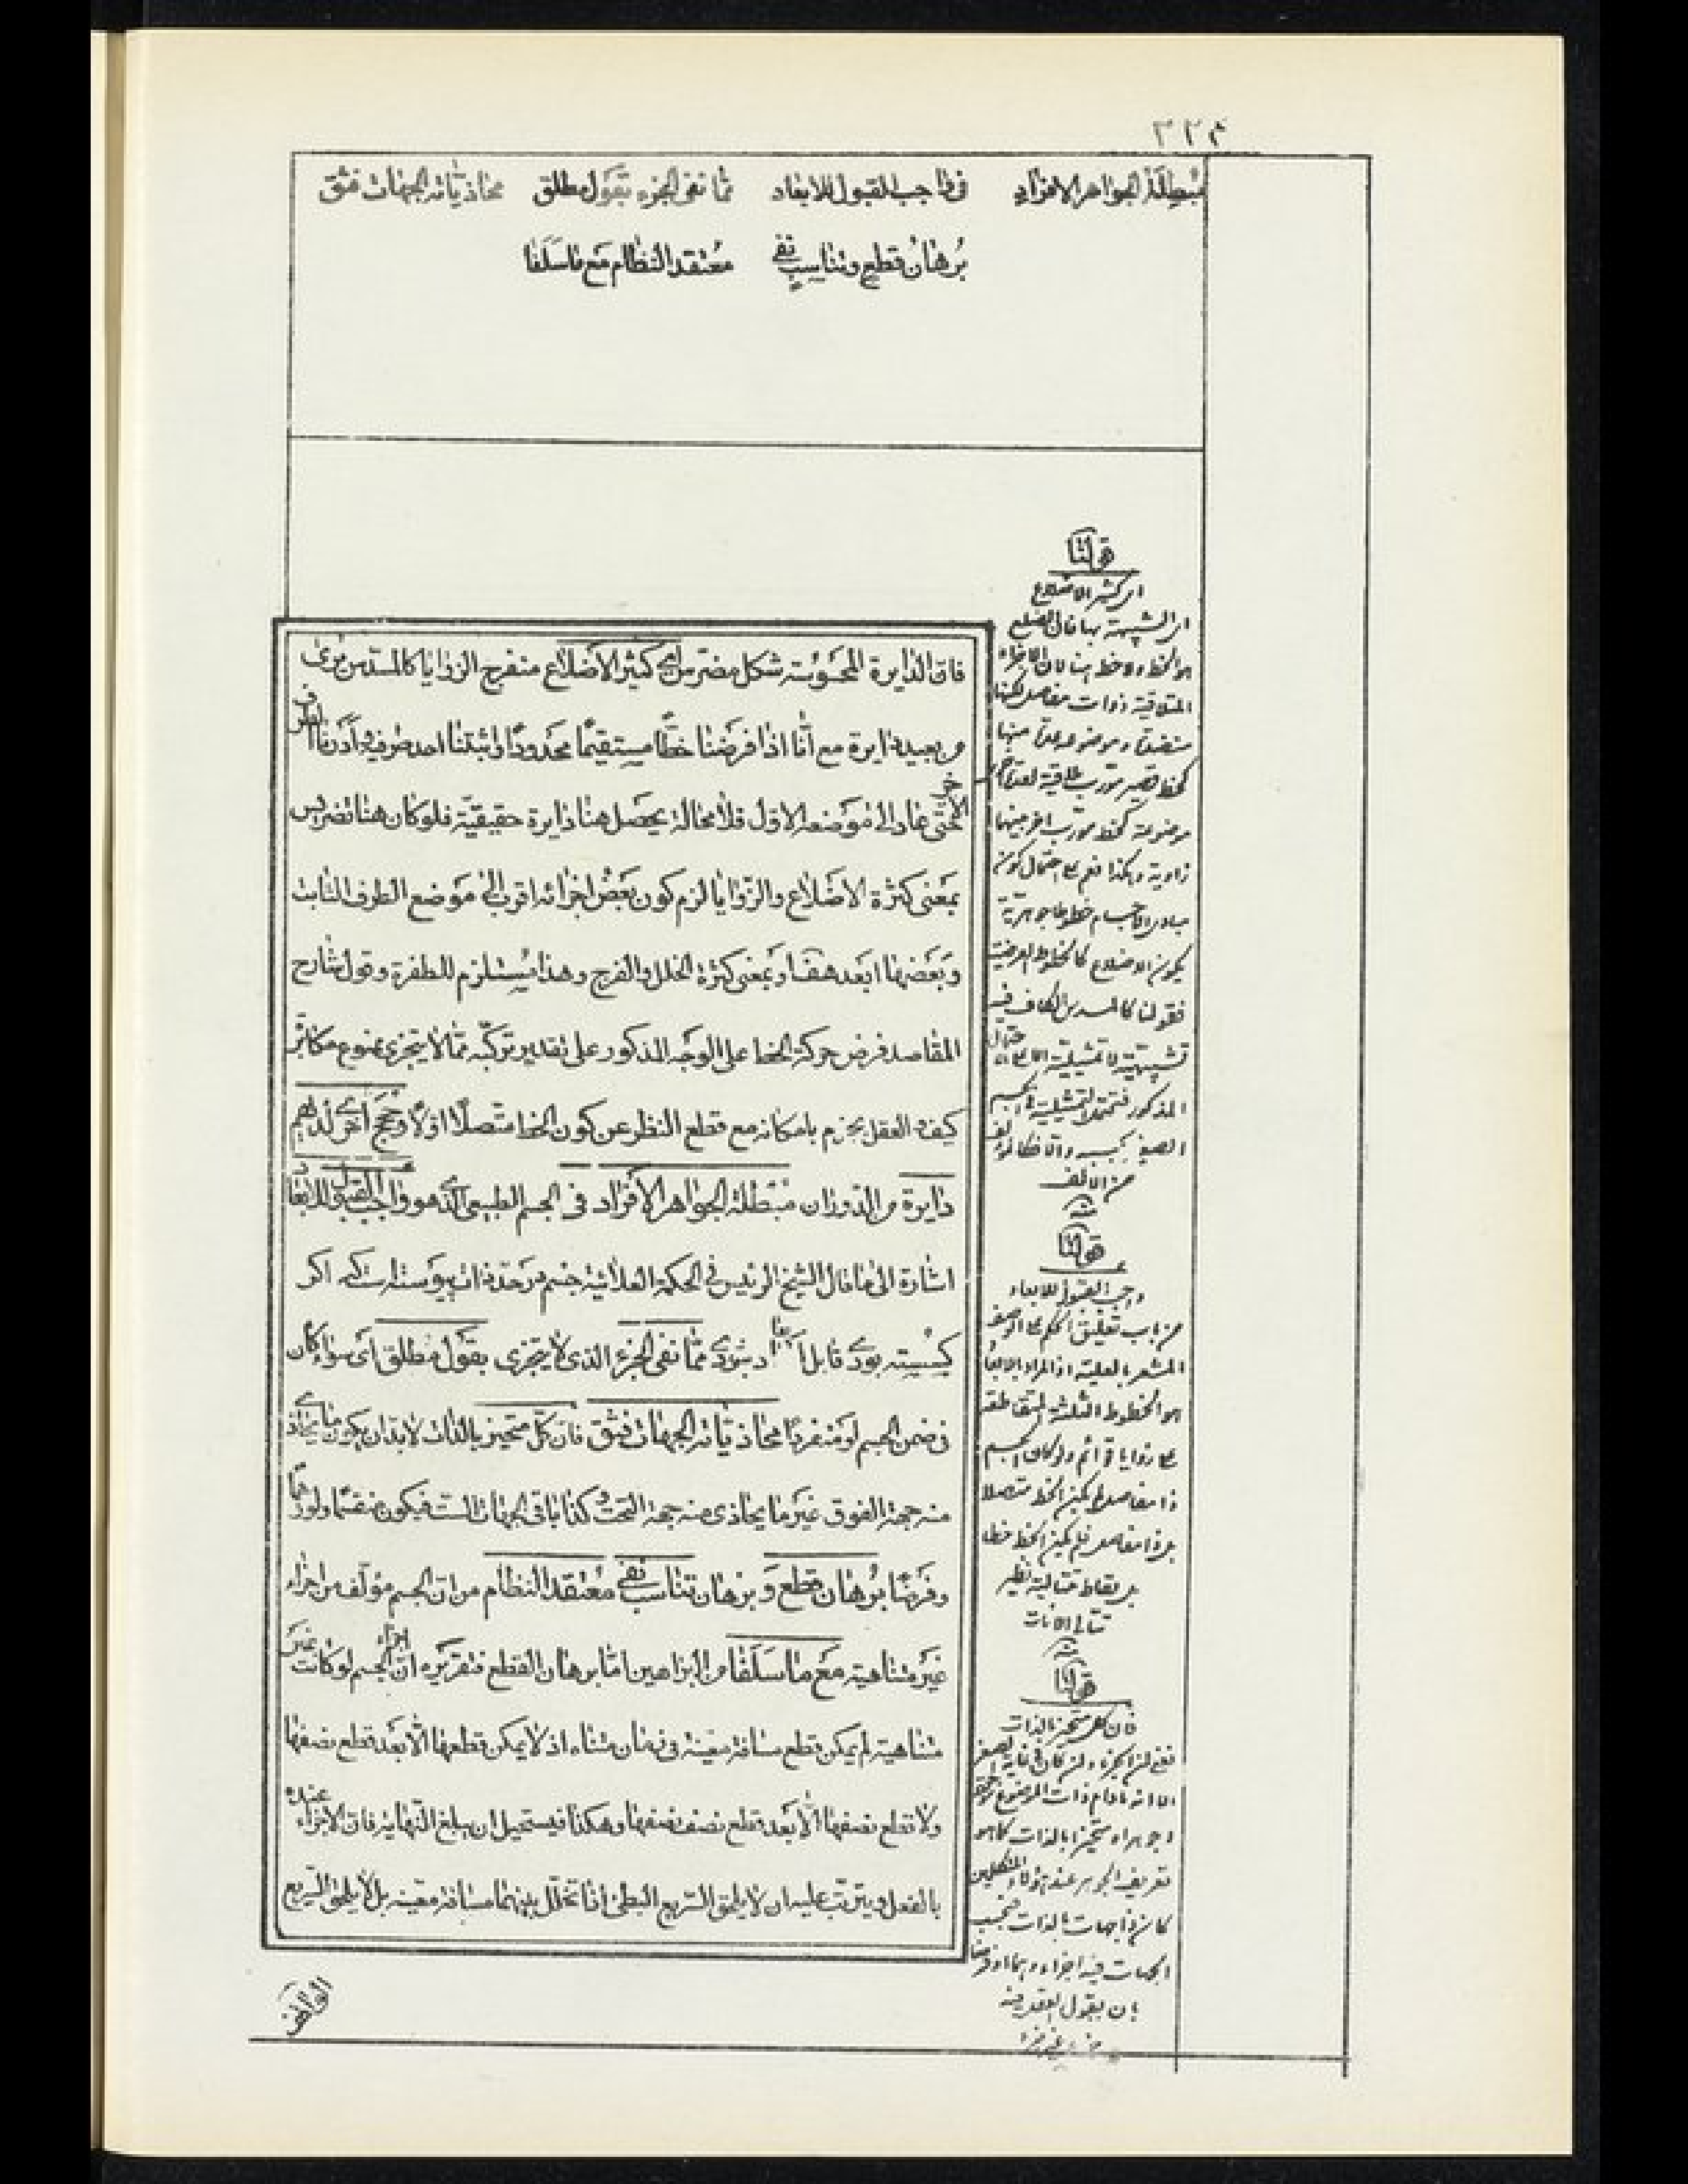 ٢٢٤
مبطلة الجواهر الافراد في واجب القبول للابعاد مما نفى الجزء بقول مطلق محاذياته الجهات فثق
برهان قطع وتناسب نفى معتقد النظام مع ما سلفا
قولنا
اى كثير الاضلاع
اى الشبيهة بها فان الضلع
هو الخط ولا خط هنا لان الاجزاء
المتلاقية ذوات مفاصل لكنها
زاوية وهكذا نعم على احتمال كون
مبادى الاجسام خطوطا جوهرية
يكون الاضلاع كالخطوط العرضية
فقولنا كالمسدس الكاف فيه
تشبيهية لا تمثيلية الا على احتمال
المذكور فتحتمل التمثيلية
قولنا
واجب القبول للابعاد
من باب تعليق الحكم على الوصف
المشعر بالعلية اذ المراد بالابعاد
هو الخطوط الثلثة المتقاطعة
على زوايا قوائم ولو كان الجسم
ذا مفاصل لم يكن الخط متصلا
بل ذا مفاصل فلم يكن الخط خطا
بل نقاط متتالية نظير
تتالى الانات
قولنا
فان كل متحيز بالذات
فنفى الجزء وان كان فى غاية الصغر
الا انه مادام ذات الوضع
او جوهرا ومتحيزا بالذات كما هو
تعريف الجوهر عند هؤلاء المتكلمين
كان ذا جهات بالذات فبحسب
الجهات فيه اجزاء وهما او فرضا
بان يقول العقل فيه
فان الدايرة المحسوسة شكل مضرس اى كثير الاضلاع منفرج الزوايا كالمسدس يرى
من بعيد دايرة مع أنا اذا فرضنا خطا مستقيما محدودا واثبتنا احد طرفيه وأدرنا الطرف
الاخر حتى عاد الى موضعه الاول فلا محالة يحصل هنا دايرة حقيقية فلو كان هنا تضريس
بمعنى كثرة الاضلاع والزوايا لزم كون بعض اجزائه اقرب الى موضع الطرف الثابت
وبعضها ابعد هف او بمعنى كثرة الخلل والفرج وهذا مستلزم للطفرة وقول شارح
المقاصد فرض حركة الخط على الوجه المذكور على تقدير تركبه مما لا يتجزى ممنوع مكابرة
كيف والعقل يجزم بامكانه مع قطع النظر عن كون الخط متصلا اولا وحجج أخرى لديهم
دايرة من الدوران مبطلة الجواهر الأفراد في الجسم الطبيعي الذى هو واجب القبول للابعاد
اشارة الى ما قال الشيخ الرئيس في الحكمة العلائية جسم در حد ذات پيوسته است كه اكر
كسسته بودى قابل ابعاد نبودى مما نفى الجزء الذى لا يتجزى بقول مطلق أى سواء كان
فى ضمن الجسم او منفردا محاذياته الجهات فثق فان كل متحيز بالذات لا بد ان يكون ما يحاذى
منه جهة الفوق غير ما يحاذى منه جهة التحت وكذا باقى الجهات الست فيكون منقسما ولو وهما
وفرضا برهان قطع وبرهان تناسب نفى معتقد النظام من ان الجسم مؤلف من اجزاء
غير متناهية مع ما سلفا من البراهين اما برهان القطع فتقريره ان اجزاء الجسم لو كانت غير
متناهية لم يمكن قطع مسافة معينة فى زمان متناه اذ لا يمكن قطعها الا بعد قطع نصفها
ولا قطع نصفها الا بعد قطع نصف نصفها وهكذا فيستحيل ان يبلغ النهاية فان الاجزاء عنده
بالفعل ويترتب عليه ان لا يلحق السريع البطئ اذا تخلل بينهما مسافة معينة بل لا يلحق السريع